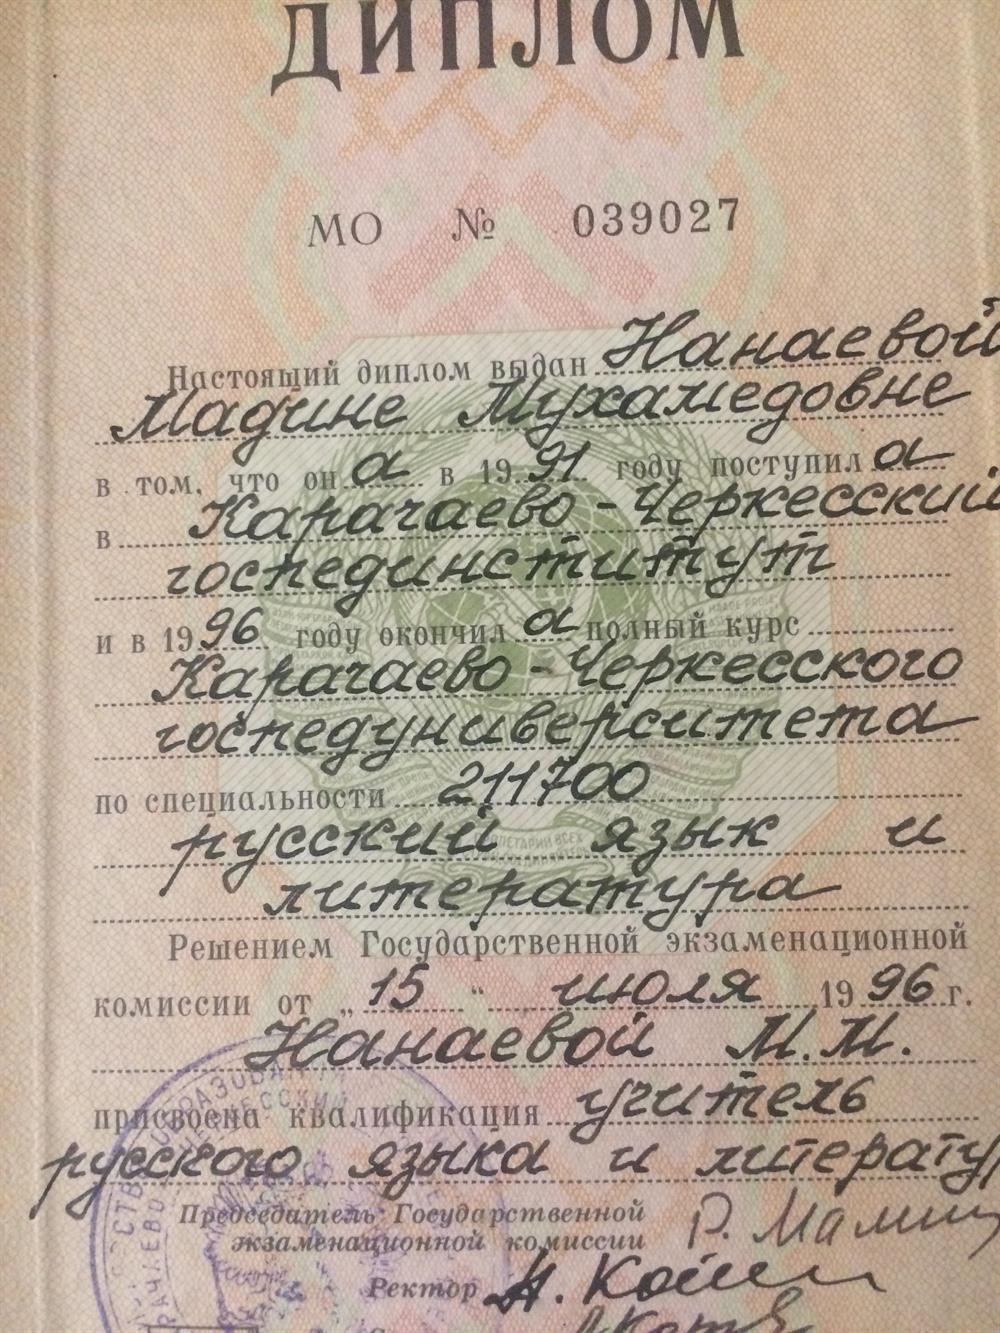 ДИПЛОМ
МО № 039027
Настоящий диплом выдан Нанаевой
Мадине Мухамедовне
в том, что он а в 1991 году поступил а
в Карачаево-Черкесский
госпединститут
и в 1996 году окончил а полный курс
Карачаево-Черкесского
госпедуниверситета
по специальности 211700
русский язык и
литература
Решением Государственной экзаменационной
комиссии от „15“ июля 1996 г.
Нанаевой М.М.
присвоена квалификация учитель
русского языка и литерату
Председатель Государственной
экзаменационной комиссии
Ректор